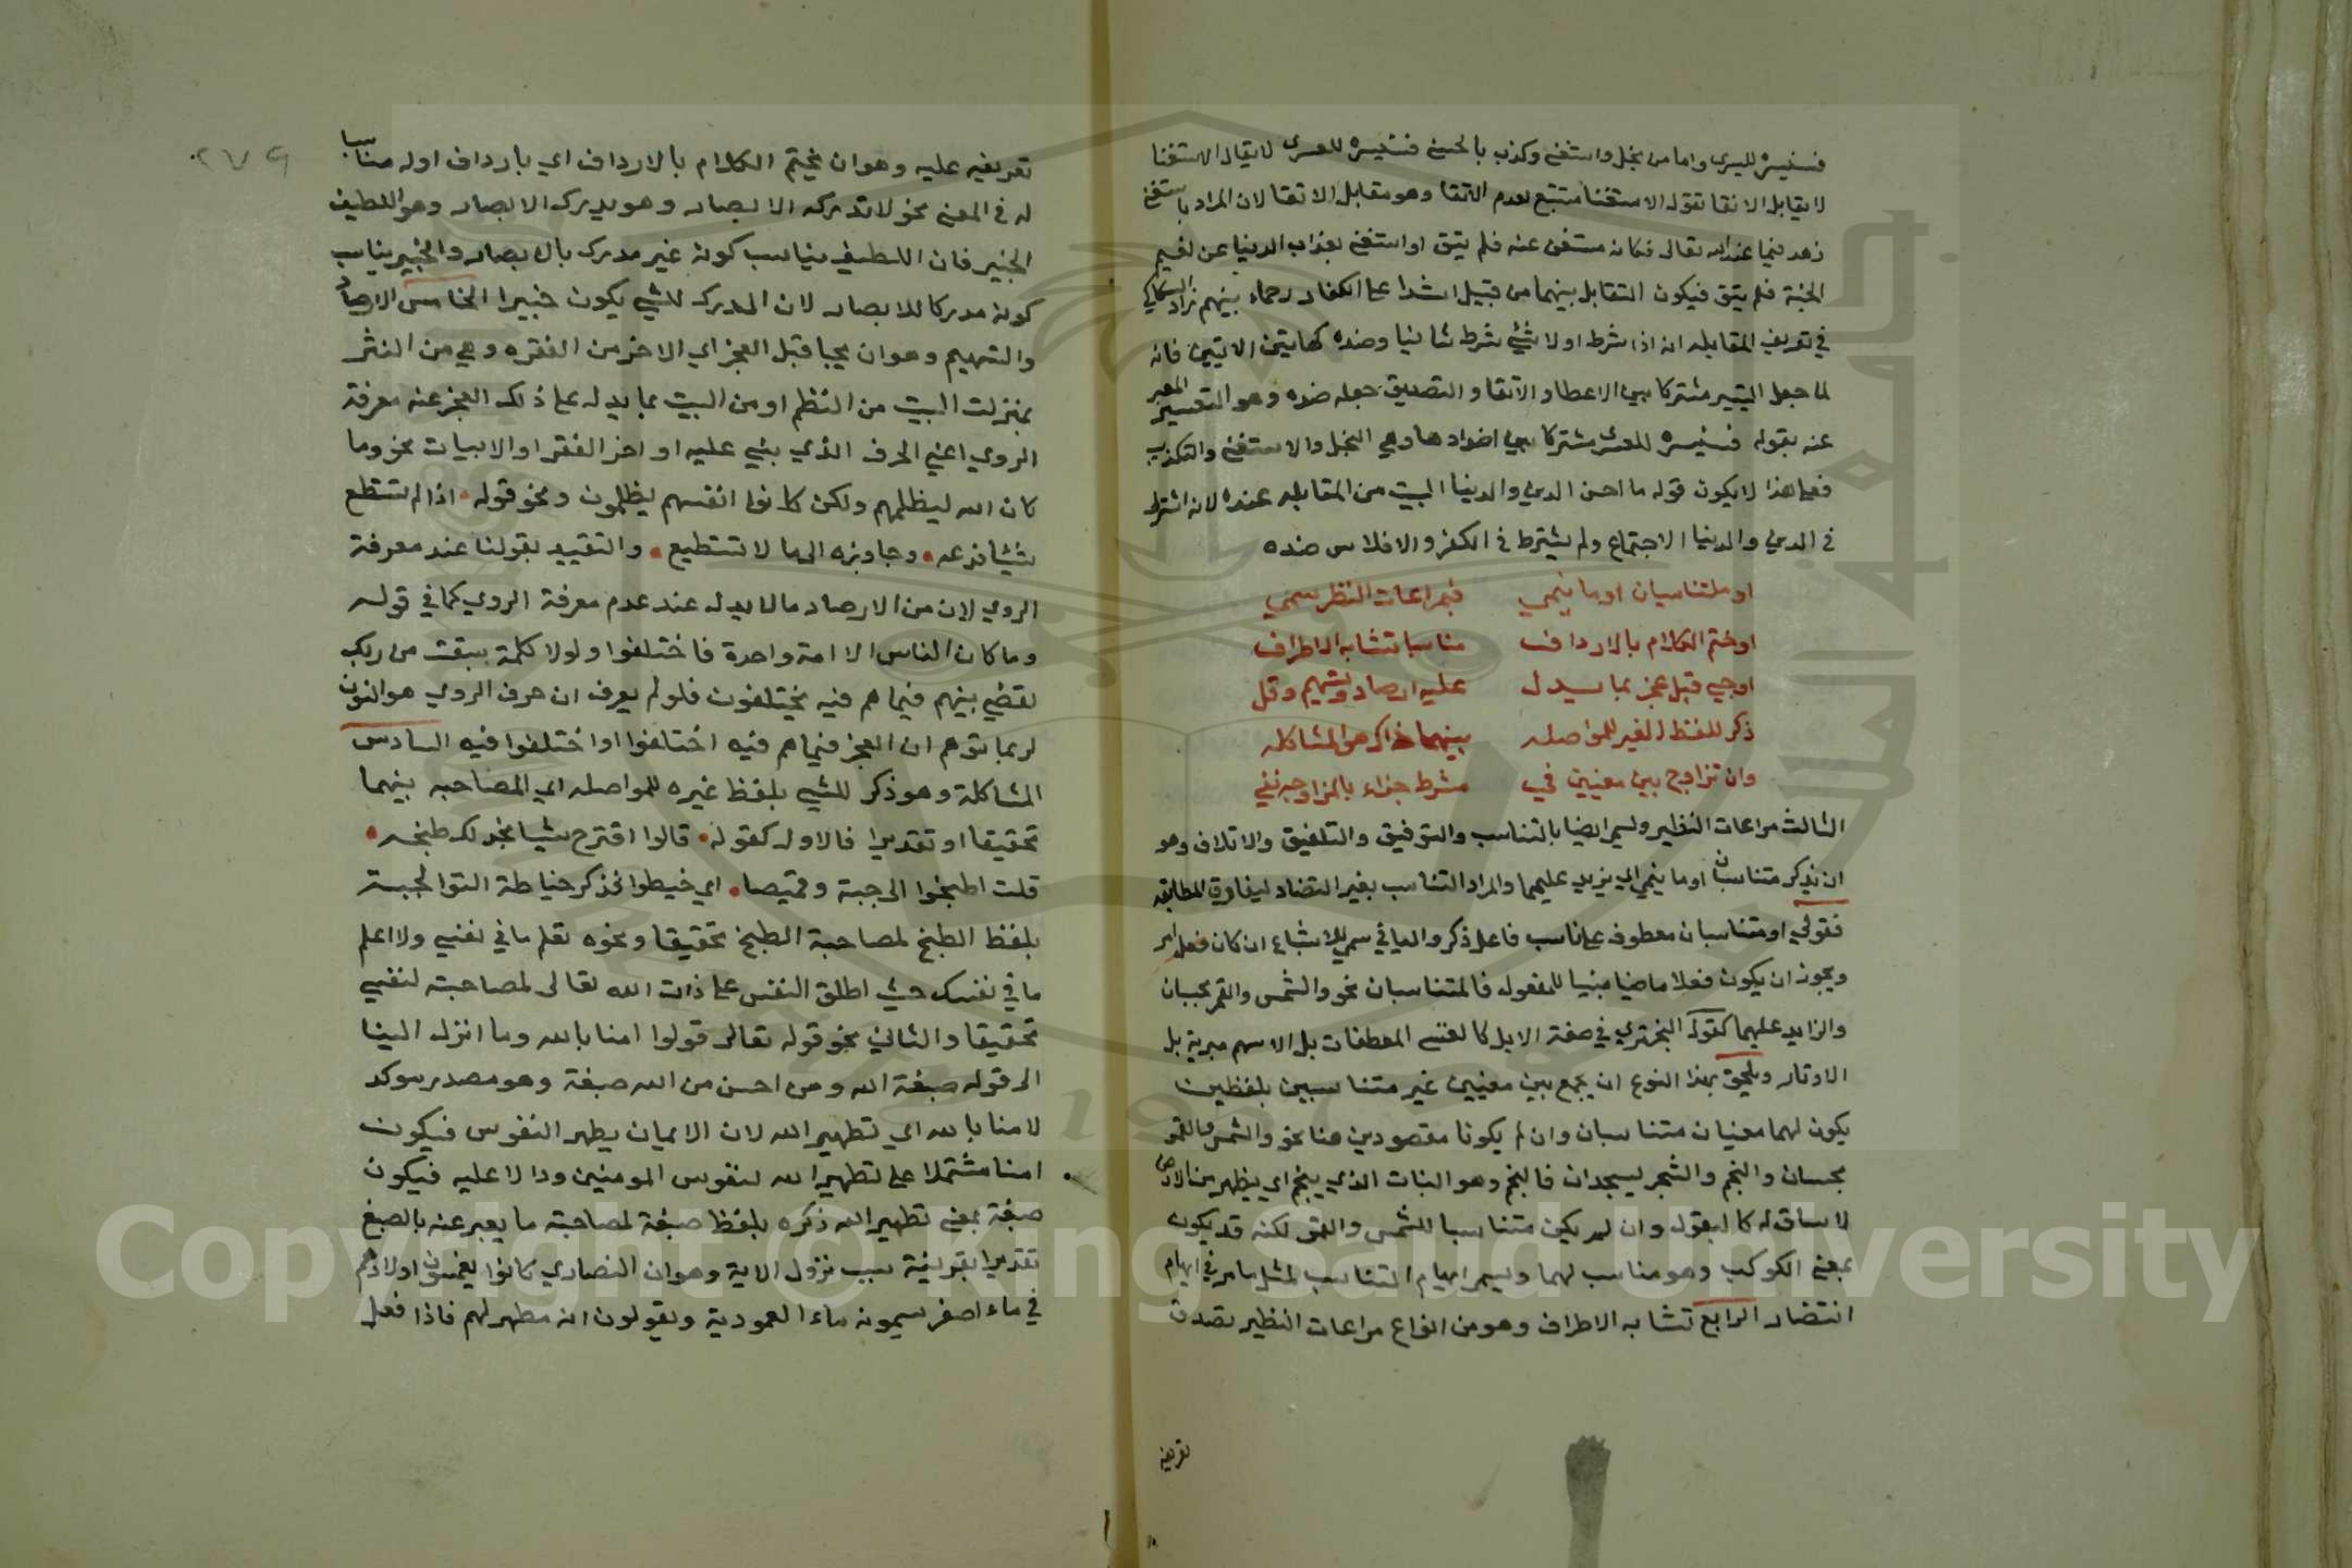 فسنيسره لليسرى واما من بخل واستغنى وكذب بالحسنى فسنيسره للعسرى لا يقال الاستغنا
لا يقابل الاتقا نقول الاستغنا متبع لعدم الاتقا وهو مقابل الاتقا لان المراد باستغنى
زهد فيما عند الله تعالى فكانه مستغن عنه فلم يتق او استغنى بعذاب الدنيا عن نعيم
الجنة فلم يتق فيكون التقابل بينهما من قبيل اشدا على الكفار رحماء بينهم زاد السكاكي
في تعريف المقابله انه اذا شرط اولا شيء شرط ثانيا وضده كهاتين الايتين فانه
لما جعل التيسير مشتركا بين الاعطا والاتقا والتصديق جعل ضده وهو التعسير المعبر
عنه بقوله فسنيسره للعسرى مشتركا بين اضدادها وهي البخل والاستغنى والتكذيب
فعلى هذا لا يكون قوله ما احسن الدين والدنيا البيت من المقابله عنده لانه اشترط
في الدين والدنيا الاجتماع ولم يشترط في الكفر والافلاس ضده
او ملتناسبان او ما ينمي فبمراعات النظر سمي
او ختم الكلام بالارداف مناسبا تشابه الاطراف
او جي قبل عجز بما سيدل عليه ارصاد وتسهيم وقل
ذكر للفظ الغير للمواصله بينهما ذاك هو المشاكله
وان تزاوج بين معنيين في شرط جزاء بالمزاوجه نفي
الثالث مراعات النظير ويسمى ايضا بالتناسب والتوفيق والتلفيق والاتلاف وهو
ان يذكر متناسبان او ما ينمي اي يزيد عليهما والمراد التناسب بغير التضاد ليفارق المطابقه
فقولي او متناسبان معطوف على ناسب فاعل ذكر واليا في سمي للاشباع ان كان فعل امر
ويجوز ان يكون فعلا ماضيا مبنيا للمفعول فالمتناسبان نحو والشمس والقمر بحسبان
والزايد عليهما كقوله البحتري في صفة الابل كالقسي المعطفات بل الاسهم مبرية بل
الاوتار ويلحق بهذا النوع ان يجمع بين معنيين غير متناسبين بلفظين
يكون لهما معنيان متناسبان وان لم يكونا مقصودين هنا نحو والشمس والقمر
بحسبان والنجم والشجر يسجدان فالنجم وهو النبات الذي ينجم اي يظهر من الارض
لا ساق له كالبقول وان لم يكن متناسبا للشمس والقمر لكنه قد يكون
بمعنى الكوكب وهو مناسب لهما ويسمى ايهام التناسب لمثل ما مر في ايهام
التضاد الرابع تشابه الاطراف وهو من انواع مراعات النظير بصدق
تعريفه
٢٧٩
تعريفه عليه وهو ان يختم الكلام بالارداف اي بارداف اوله مناسبا
له في المعنى نحو لا تدركه الابصار وهو يدرك الابصار وهو اللطيف
الخبير فان اللطيف يناسب كونه غير مدرك بالابصار والخبير يناسب
كونه مدركا للابصار لان المدرك للشي يكون خبيرا الخامس الارصاد
والتسهيم وهو ان يجيا قبل العجز اي الاخر من الفقره وهي من النثر
بمنزلت البيت من النظم او من البيت بما يدل على ذلك العجز عنه معرفة
الروي اعني الحرف الذي بني عليه اواخر الفقر او الابيات نحو وما
كان الله ليظلمهم ولكن كانوا انفسهم يظلمون ونحو قوله اذا لم تستطع
شيئا فدعه وجاوزه الى ما لا تستطيع والتقييد بقولنا عند معرفة
الروي لان من الارصاد مالا يدل عند عدم معرفة الروي كما في قوله
وما كان الناس الا امة واحدة فاختلفوا ولولا كلمة سبقت من ربك
لقضي بينهم فيما هم فيه يختلفون فلو لم يعرف ان حرف الروي هو النون
لربما توهم ان العجز فيما هم فيه اختلفوا او اختلفوا فيه السادس
المشاكلة وهو ذكر للشي بلفظ غيره للمواصله اي المصاحبه بينهما
تحقيقا او تقديرا فالاول كقوله قالوا اقترح شيا نجد لك طبخه
قلت اطبخوا الى جبة وقميصا اي خيطوا فذكر خياطة التوا لجبة
بلفظ الطبخ لمصاحبة الطبخ تحقيقا ونحوه تعلم ما في نفسي ولا اعلم
ما في نفسك حيث اطلق النفس على ذات الله تعالى لمصاحبته لنفسي
تحقيقا والثاني نحو قوله تعالى قولوا امنا بالله وما انزل الينا
الى قوله صبغة الله ومن احسن من الله صبغة وهو مصدر موكد
لامنا بالله اي تطهير الله لان الايمان يطهر النفوس فيكون
امنا مشتملا على تطهير الله لنفوس المومنين ودالا عليه فيكون
صبغة بمعنى تطهير الله ذكره بلفظ صبغة لمصاحبته ما يعبر عنه بالصبغ
تقديرا بقرينة سبب نزول الاية وهو ان النصاري كانوا يغمسون اولادهم
في ماء اصفر يسمونه ماء المعمودية ويقولون انه مطهر لهم فاذا فعل
Copyright © King Saud University